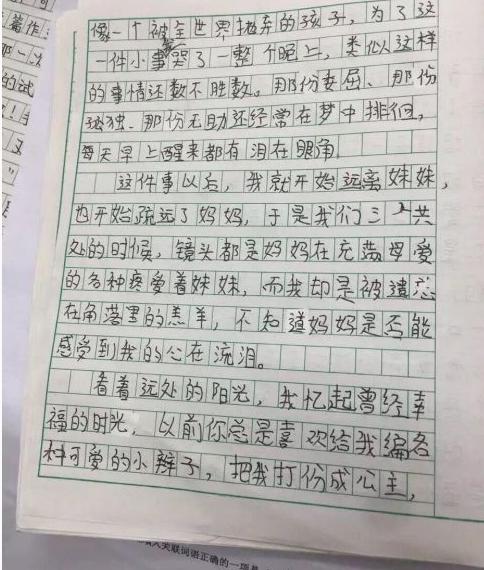 像一个被全世界抛弃的孩子，为了这
一件小事哭了一整个晚上，类似这样
的事情还数不胜数。那份委屈、那份
孤独、那份无助还经常在梦中排徊，
每天早上醒来都有泪在眼角。
这件事以后，我就开始远离妹妹，
也开始疏远了妈妈，于是我们三人共
处的时候，镜头都是妈妈在充满母爱
的各种疼爱着妹妹，而我却是被遗忘
在角落里的羔羊，不知道妈妈是否能
感受到我的心在流泪。
看着远处的阳光，我忆起曾经幸
福的时光，以前你总是喜欢给我编各
种可爱的小辫子，把我打份成公主，
篇作
那一次
的试
又
关联词语正确的一项是